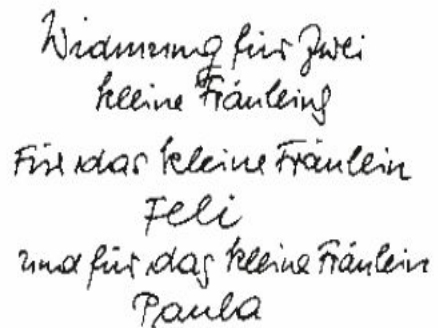 Widmung für zwei
kleine Fräuleins
Für das kleine Fräulein
Feli
und für das kleine Fräulein
Paula